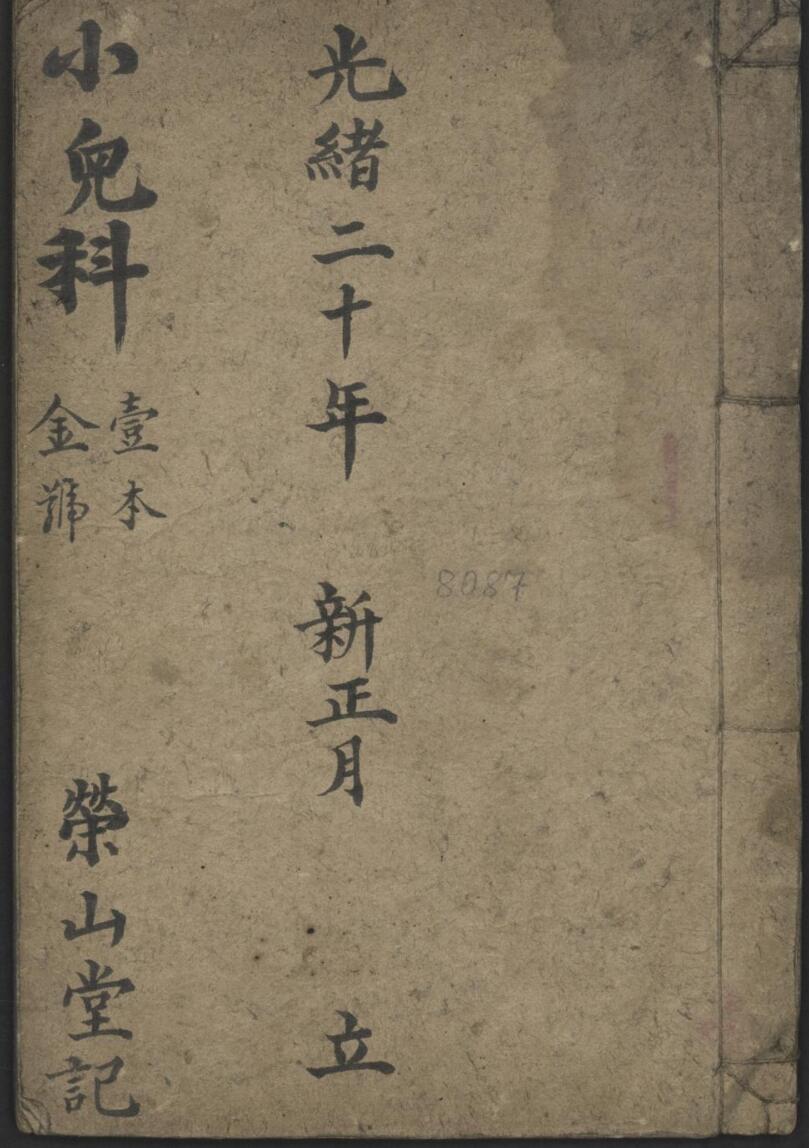 光緒二十年 新正月 立
8087
小兒科
壹本
金號
榮山堂記